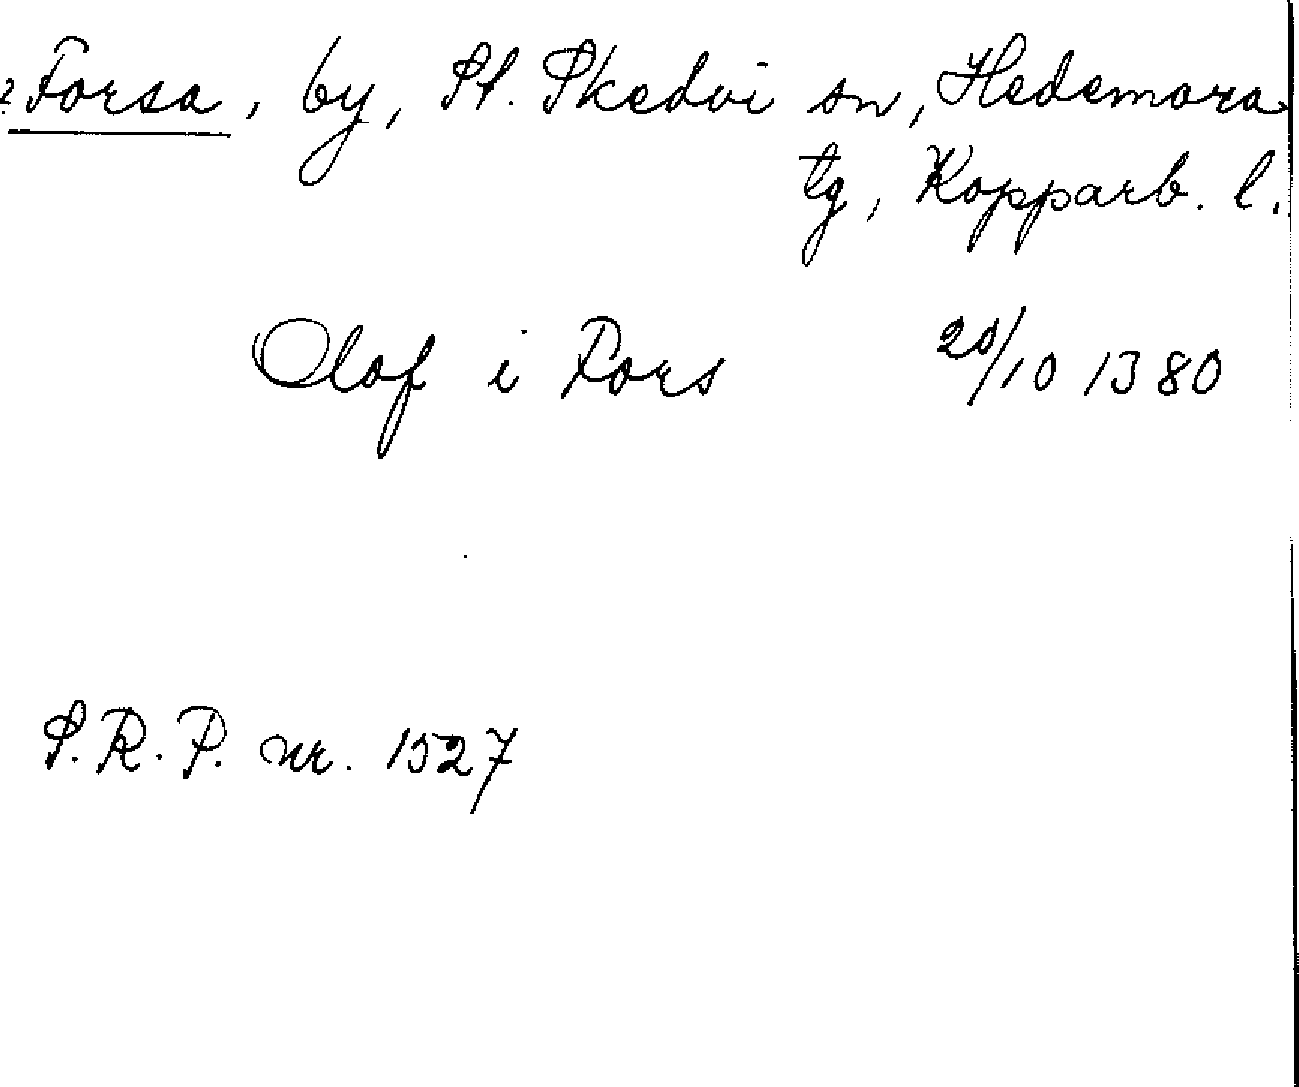 ? Forsa, by, St. Skedvi sn, Hedemora
tg, Kopparb. l.
Olof i Fors 20/10 1380
S.R.P. nr. 1527